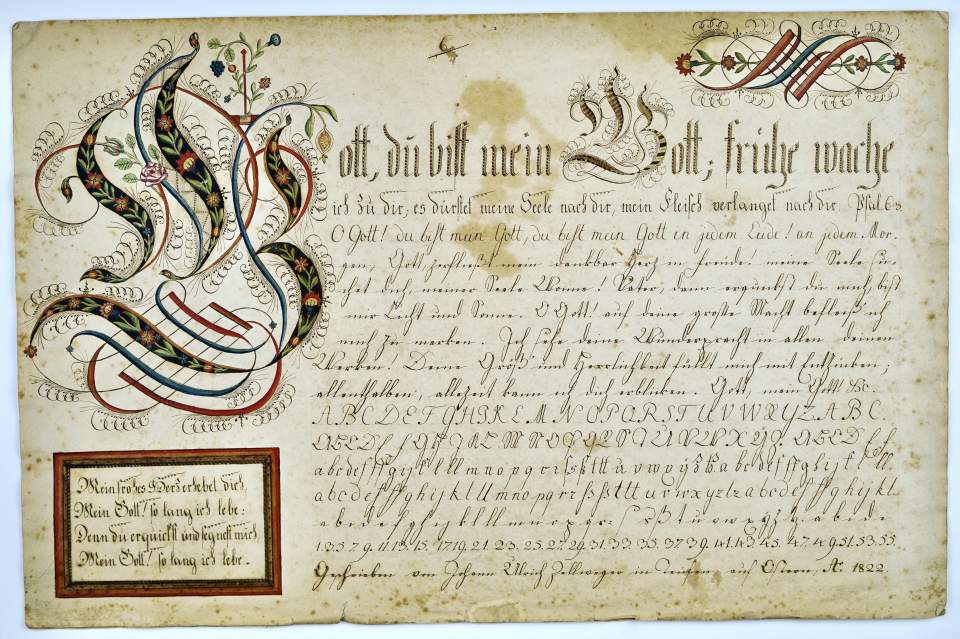 Gott, du bist mein Gott; frühe wache
ich zu dir, es dürstet meine Seele nach dir, mein Fleisch verlanget nach dir. Psal. 63
O Gott! du bist mein Gott, du bist mein Gott in jedem Leide! an jedem Mor-
gen, Gott, zerfließt mein dankbar Herz in Freude! meine Seele su-
chet dich, meiner Seele Wonne! Vater, dann erquickst du mich, bist
mir Licht und Sonne. O Gott! auf deine große Macht befleiß ich
mich zu merken. Ich sehe deine Wunderpracht in allen deinen
Werken! Deine Größ und Herrlichkeit füllt mich mit Entzücken;
allenthalben, allezeit kann ich dich erblicken. Gott, mein Gott! &c.
A B C D E F G H I K L M N O P Q R S T U V W X Y Z. A B C
a b c d e f f g h i j k l l m n o p q r s
a b c d e f f g h i j k l l l m n o p q r r s ß t t t u v w x y z
1. 3. 5. 7. 9. 11. 13. 15. 17. 19. 21. 23. 25. 27. 29. 31. 33. 35. 37. 39. 41. 43. 45. 47. 49. 51. 53. 55.
Geschrieben von Johann Ulrich Zellweger in Teufen, auf Ostern, Aº 1822.
Mein frohes Herz erhebet dich,
Mein Gott! so lang ich lebe:
Denn du erquickst und segnest mich
Mein Gott! so lang ich lebe.